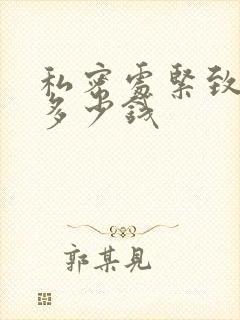 私密處緊致
多少錢
郭某見